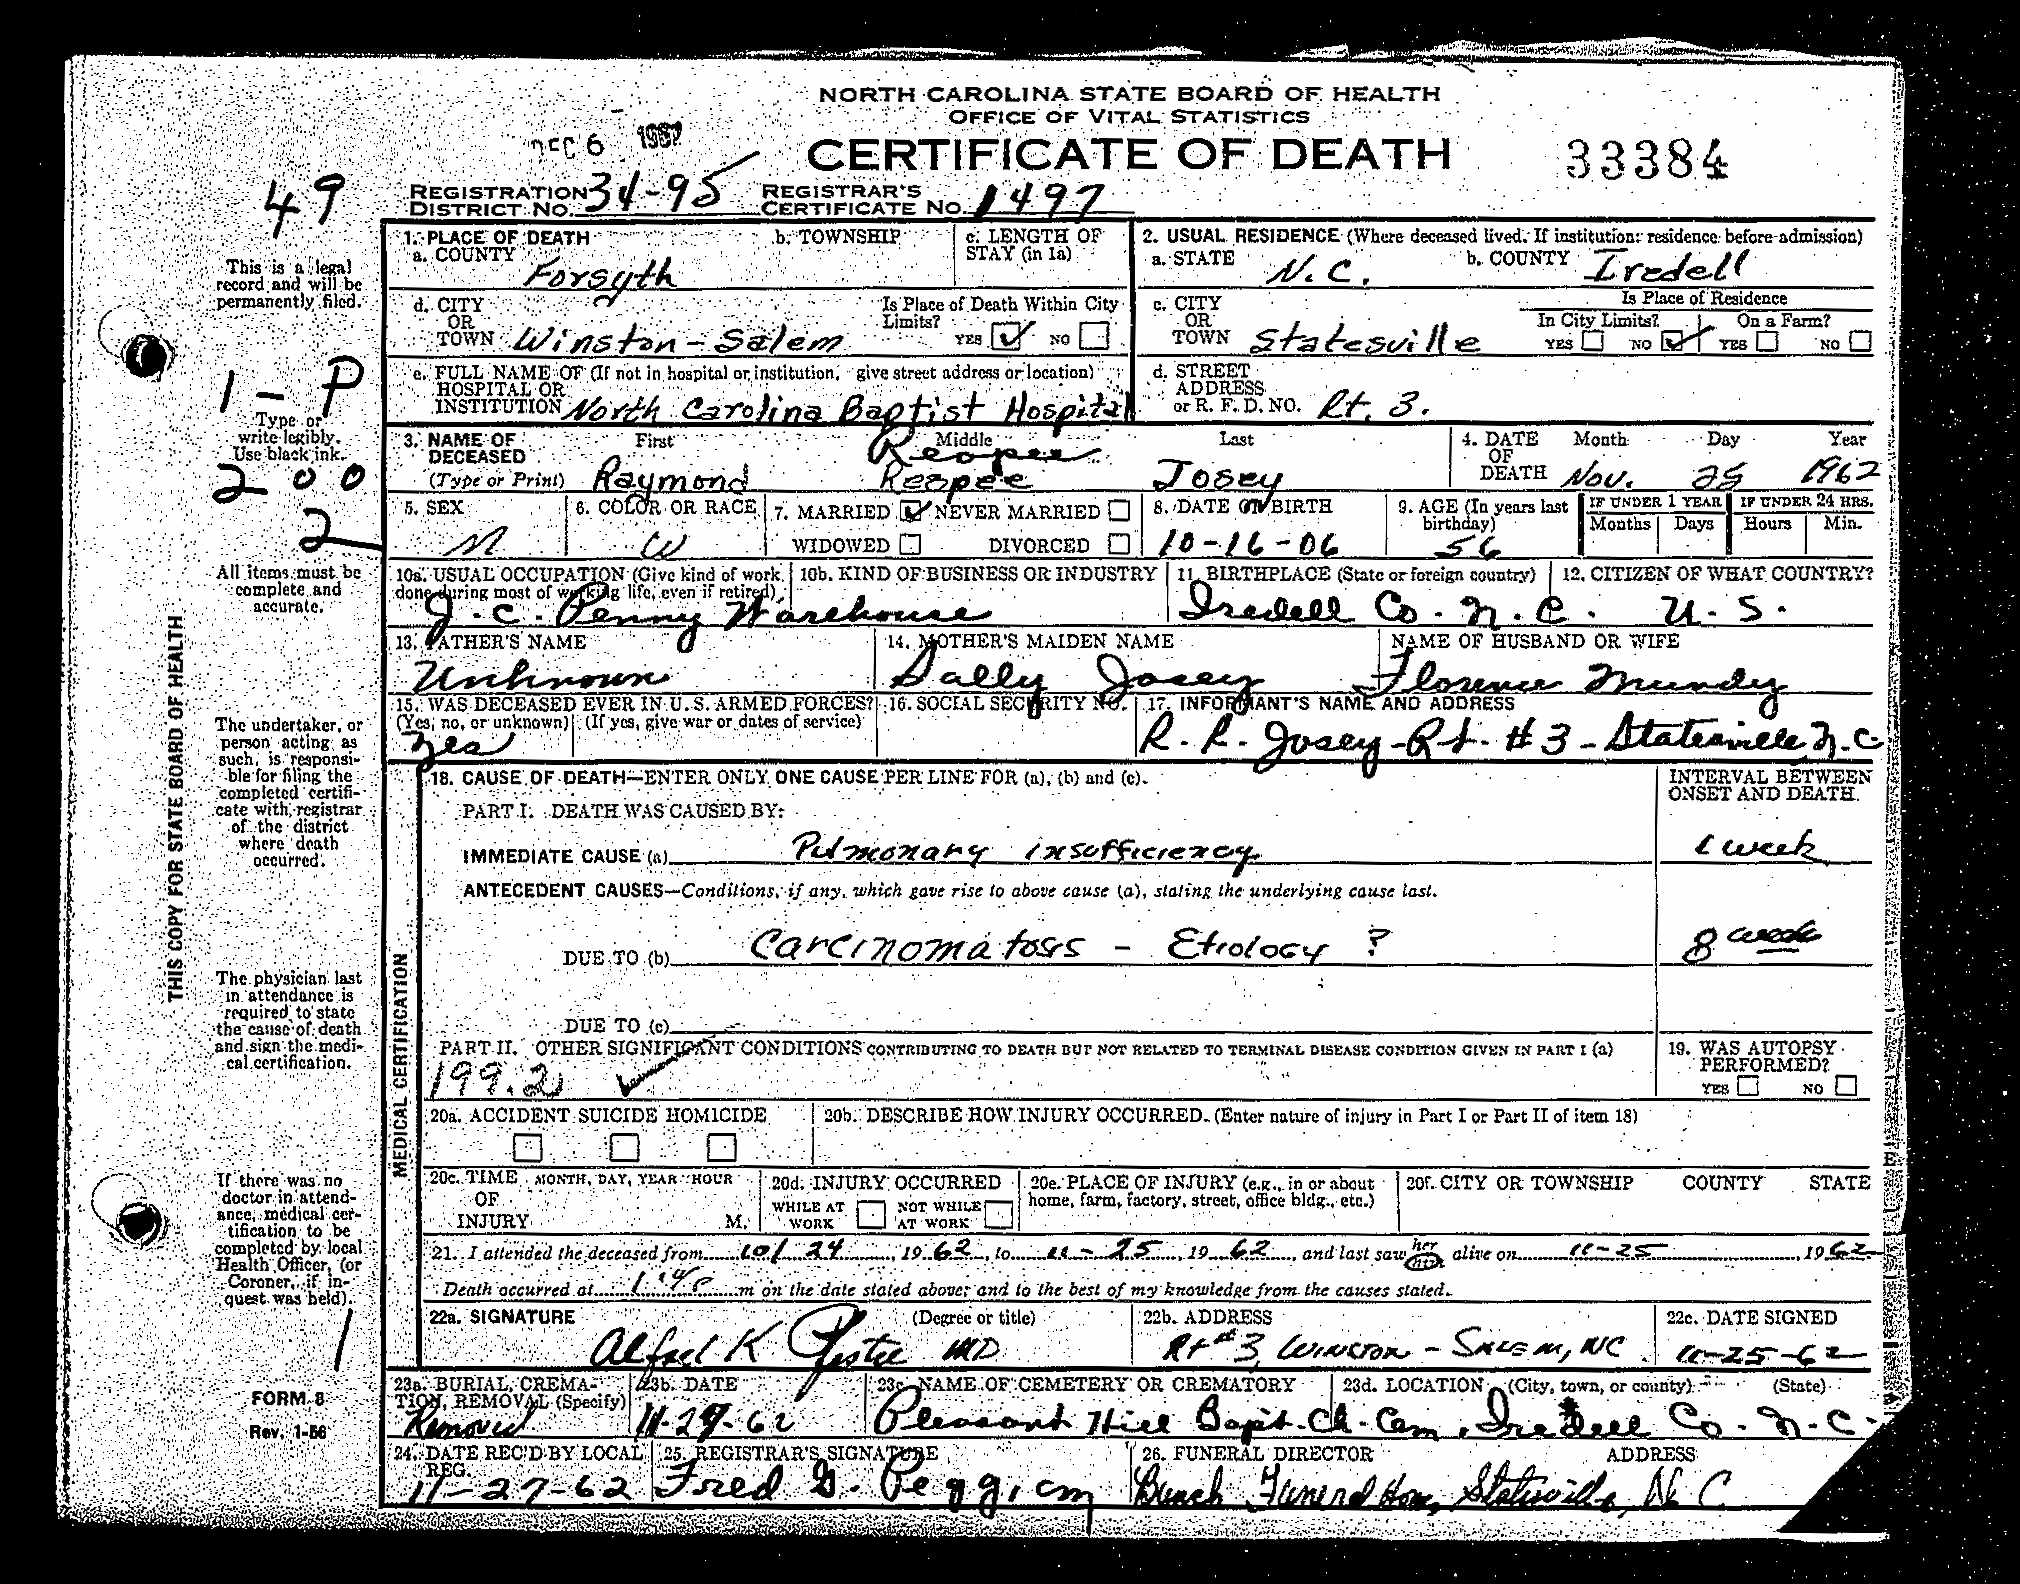 NORTH CAROLINA STATE BOARD OF HEALTH
OFFICE OF VITAL STATISTICS
DEC 6 1962
CERTIFICATE OF DEATH
33384
49
REGISTRATION DISTRICT NO. 34-95 REGISTRAR'S CERTIFICATE NO. 1497
This is a legal record and will be permanently filed.
1. PLACE OF DEATH
a. COUNTY Forsyth
b. TOWNSHIP
c. LENGTH OF STAY (in 1a)
2. USUAL RESIDENCE (Where deceased lived. If institution: residence before admission)
a. STATE N.C. b. COUNTY Iredell
d. CITY OR TOWN Winston-Salem
Is Place of Death Within City Limits? YES ✓ NO
c. CITY OR TOWN Statesville
Is Place of Residence
In City Limits? On a Farm?
YES NO ✓ YES NO
1-P
e. FULL NAME OF (If not in hospital or institution, give street address or location)
HOSPITAL OR INSTITUTION North Carolina Baptist Hospital
d. STREET ADDRESS or R. F. D. NO. Rt. 3.
Type or write legibly. Use black ink.
200
2
3. NAME OF DECEASED (Type or Print)
First Middle Last
Raymond Josey
4. DATE OF DEATH Month Day Year
Nov. 25 1962
5. SEX M
6. COLOR OR RACE W
7. MARRIED ✓ NEVER MARRIED
WIDOWED DIVORCED
8. DATE OF BIRTH 10-16-06
9. AGE (In years last birthday) 56
IF UNDER 1 YEAR Months Days
IF UNDER 24 HRS. Hours Min.
All items must be complete and accurate.
10a. USUAL OCCUPATION (Give kind of work done during most of working life, even if retired)
10b. KIND OF BUSINESS OR INDUSTRY
J.C. Penny Warehouse
11. BIRTHPLACE (State or foreign country)
Iredell Co. N.C.
12. CITIZEN OF WHAT COUNTRY?
U.S.
13. FATHER'S NAME
Unknown
14. MOTHER'S MAIDEN NAME
Sally Josey
NAME OF HUSBAND OR WIFE
Florence Mundy
15. WAS DECEASED EVER IN U. S. ARMED FORCES?
(Yes, no, or unknown) (If yes, give war or dates of service)
Yes
16. SOCIAL SECURITY NO.
17. INFORMANT'S NAME AND ADDRESS
R. R. Josey-Rt. #3-Statesville N.C.
THIS COPY FOR STATE BOARD OF HEALTH
The undertaker, or person acting as such, is responsible for filing the completed certificate with registrar of the district where death occurred.
MEDICAL CERTIFICATION
18. CAUSE OF DEATH—ENTER ONLY ONE CAUSE PER LINE FOR (a), (b) and (c).
INTERVAL BETWEEN ONSET AND DEATH.
PART I. DEATH WAS CAUSED BY:
IMMEDIATE CAUSE (a) Pulmonary insufficiency. 1 week
ANTECEDENT CAUSES—Conditions, if any, which gave rise to above cause (a), stating the underlying cause last.
DUE TO (b) Carcinomatosis - Etiology ? 8 weeks
DUE TO (c)
The physician last in attendance is required to state the cause of death and sign the medical certification.
PART II. OTHER SIGNIFICANT CONDITIONS CONTRIBUTING TO DEATH BUT NOT RELATED TO TERMINAL DISEASE CONDITION GIVEN IN PART I (a)
199.2 ✓
19. WAS AUTOPSY PERFORMED?
YES NO
20a. ACCIDENT SUICIDE HOMICIDE
20b. DESCRIBE HOW INJURY OCCURRED. (Enter nature of injury in Part I or Part II of item 18)
20c. TIME OF INJURY MONTH, DAY, YEAR HOUR M.
20d. INJURY OCCURRED
WHILE AT WORK NOT WHILE AT WORK
20e. PLACE OF INJURY (e.g., in or about home, farm, factory, street, office bldg., etc.)
20f. CITY OR TOWNSHIP COUNTY STATE
If there was no doctor in attendance, medical certification to be completed by local Health Officer, (or Coroner, if inquest was held).
1
21. I attended the deceased from 10/24, 1962, to 11-25, 1962, and last saw her him alive on 11-25, 1962
Death occurred at m on the date stated above; and to the best of my knowledge from the causes stated.
22a. SIGNATURE (Degree or title)
Alfred K MD
22b. ADDRESS
Rt #3, Winston-Salem, NC
22c. DATE SIGNED
11-25-62
FORM 8
Rev. 1-56
23a. BURIAL, CREMATION, REMOVAL (Specify)
Removed
23b. DATE
11-27-62
23c. NAME OF CEMETERY OR CREMATORY
Pleasant Hill Bapt. Ch. Cem.
23d. LOCATION (City, town, or county) (State)
Iredell Co. N.C.
24. DATE REC'D BY LOCAL REG.
11-27-62
25. REGISTRAR'S SIGNATURE
Fred G. Pegg, cm
26. FUNERAL DIRECTOR ADDRESS
Bunch Funeral Home, Statesville, N.C.